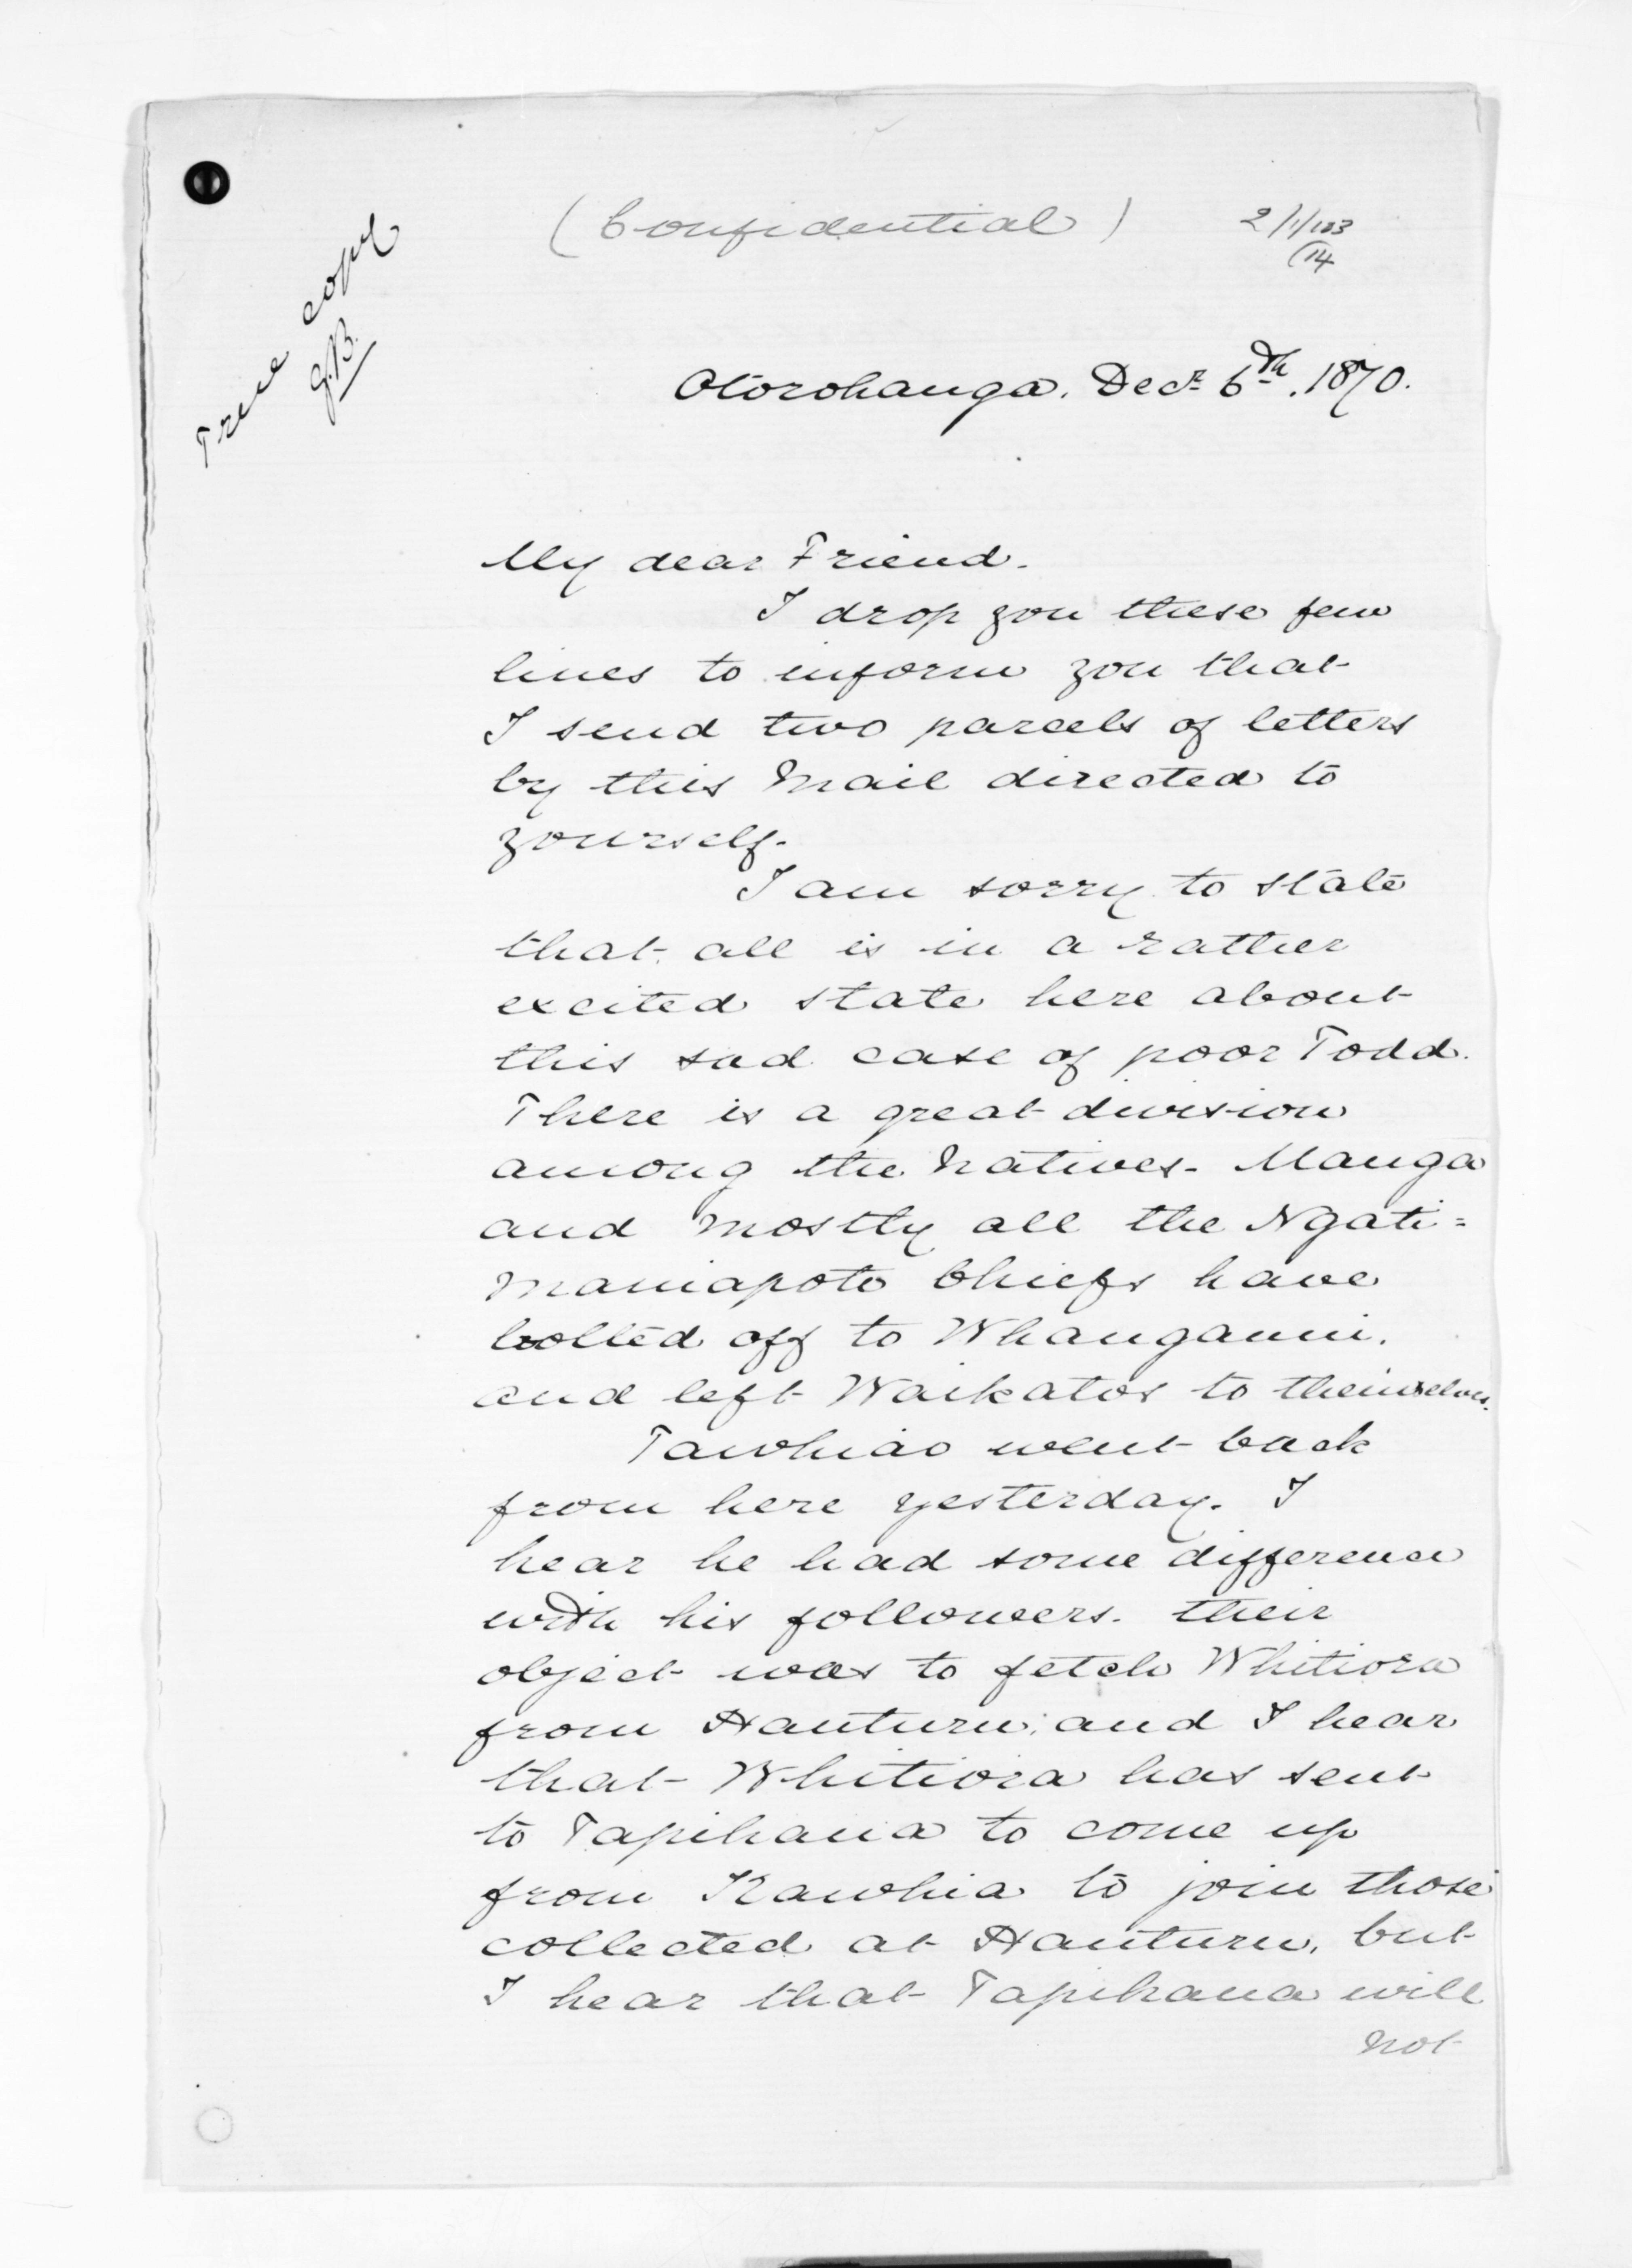 True copy
J.B.
(Confidential)
2/1/133
/14
Otorohanga. Decr. 6th. 1870.
My dear Friend.
I drop you these few
lines to inform you that
I send two parcels of letters
by this Mail directed to
yourself.
I am sorry to state
that all is in a rather
excited state here about
this sad case of poor Todd.
There is a great division
among the Natives. Manga
and mostly all the Ngati=
Maniapoto Chiefs have
bolted off to Whanganui.
and left Waikatos to themselves.
Tawhiao went back
from here yesterday. I
hear he had some difference
with his followers. their
object was to fetch Whitiora
from Hauturu; and I hear
that Whitiora has sent
to Tapihana to come up
from Kawhia to join those
collected at Hauturu, but
I hear that Tapihana will
not